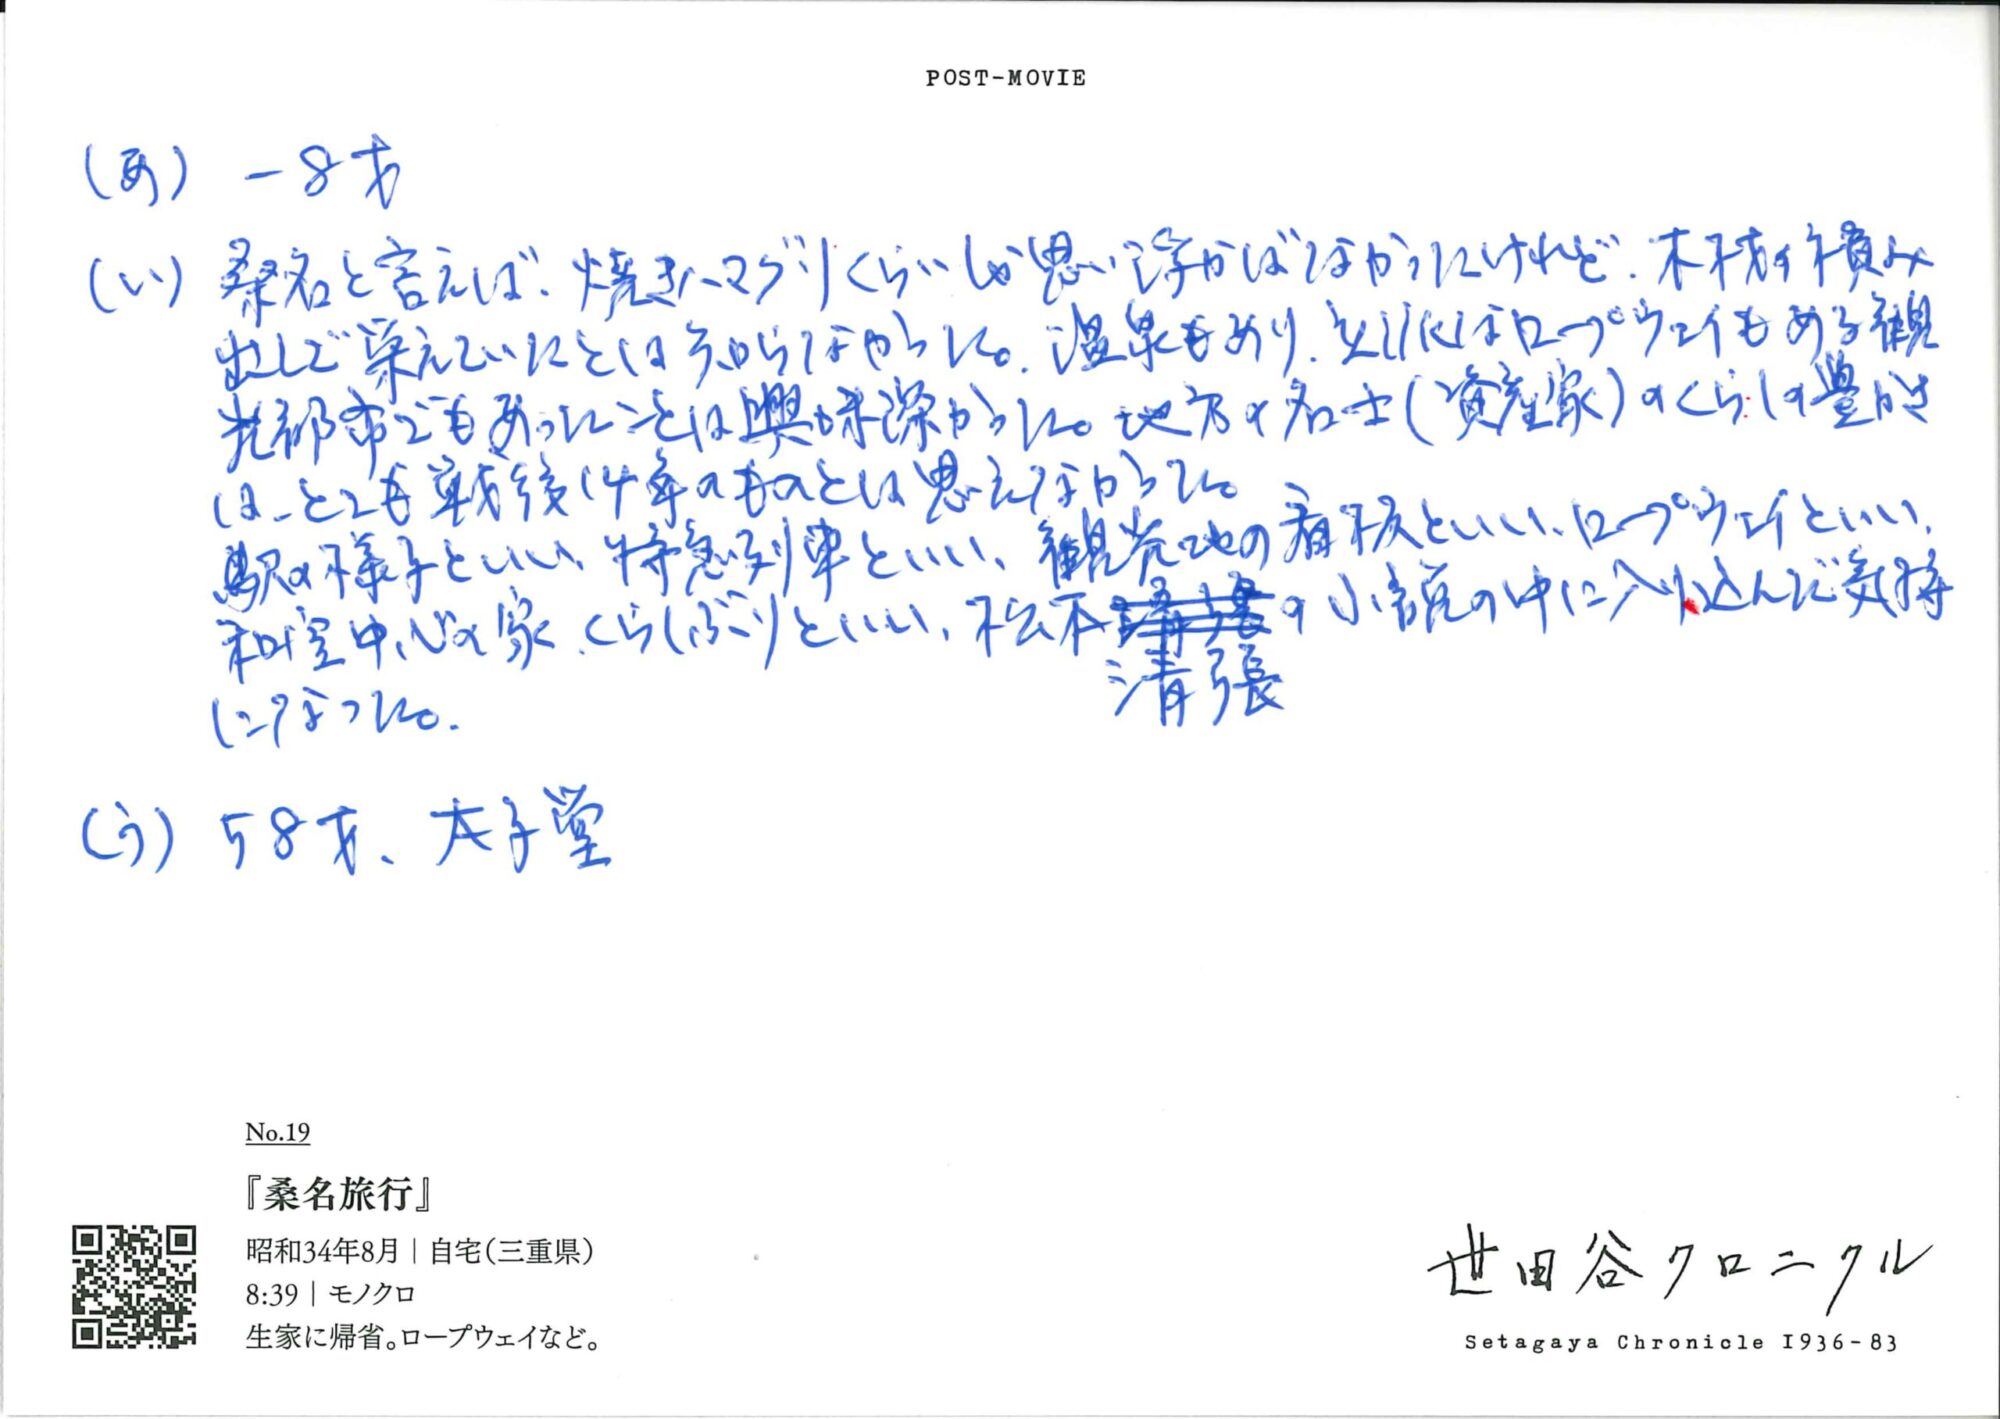 POST-MOVIE
(あ) -8才
(い) 桑名と言えば、焼きハマグリくらいしか思い浮かばなかったけれど、木材の積み
出しで栄えていたとは知らなかった。温泉もあり、さらにはロープウェイもある観
光都市でもあったことは興味深かった。地方の名士(資産家)のくらしの豊かさ
は、とても戦後14年のものとは思えなかった。
駅の様子といい、特急列車といい、観光地の看板といい、ロープウェイといい、
和室中心の家、くらしぶりといい、松本清張の小説の中に入り込んだ気持
清張
になった。
(う) 58才、太子堂
No.19
『桑名旅行』
昭和34年8月|自宅(三重県)
8:39|モノクロ
生家に帰省。ロープウェイなど。
世田谷クロニクル
Setagaya Chronicle 1936-83